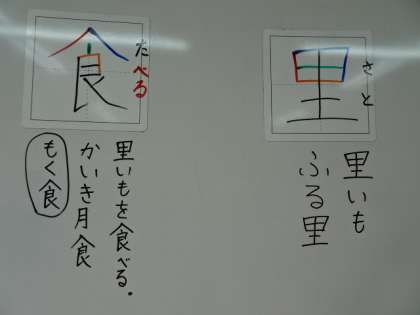 里
さと
里いも
ふる里
食
たべる
里いもを食べる。
かいき月食
もく食